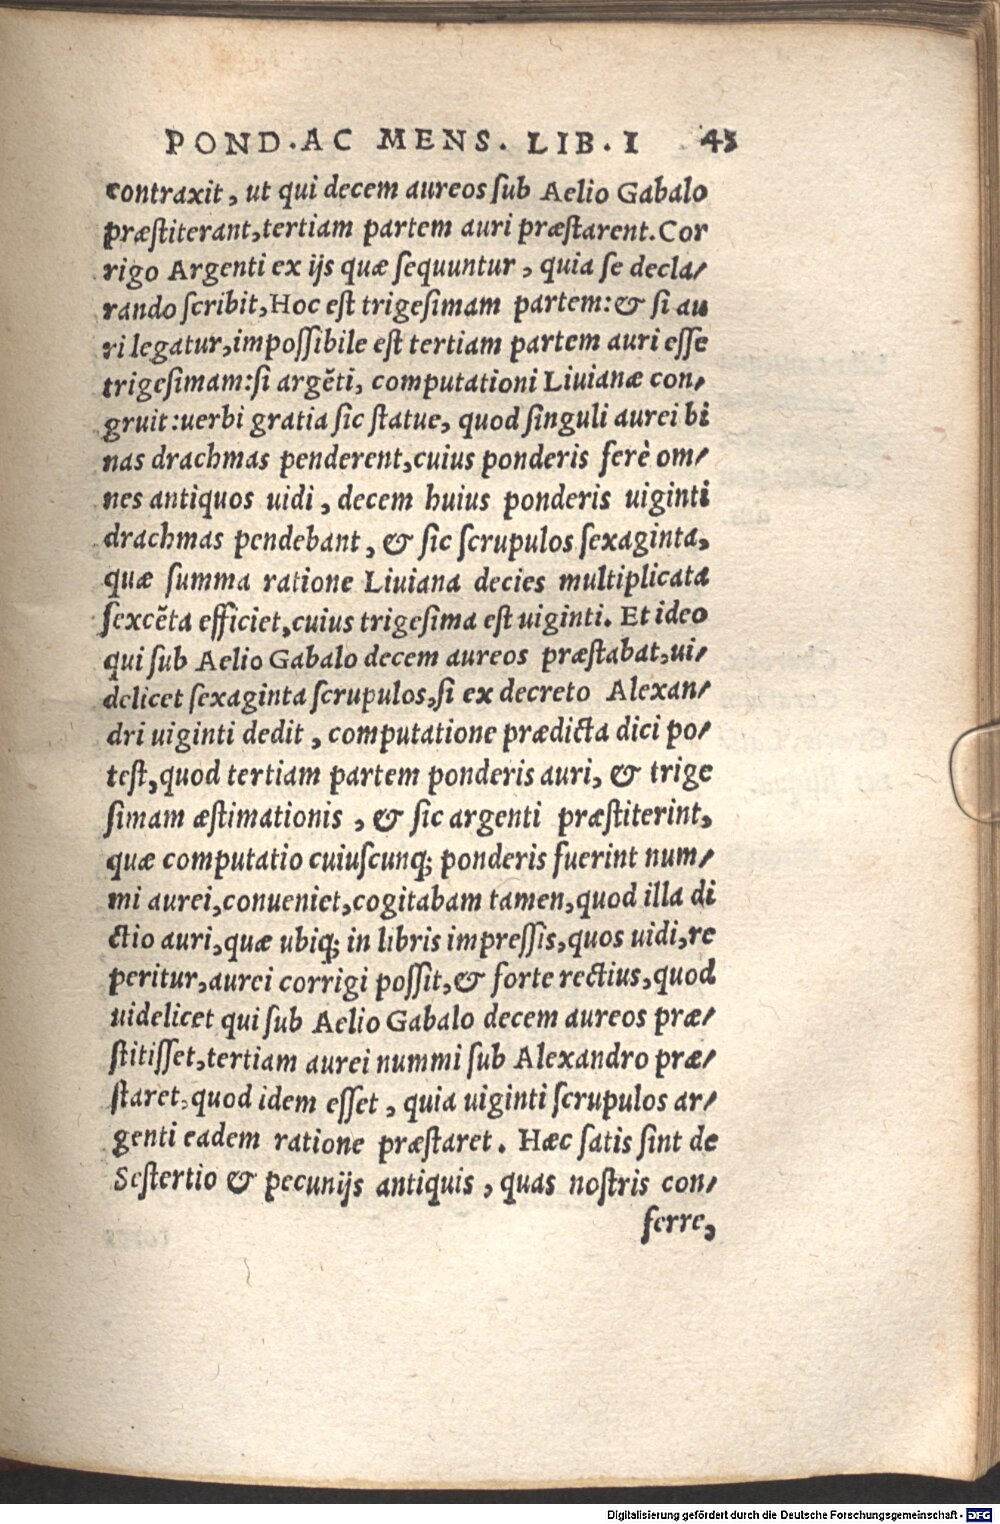 POND. AC MENS. LIB. I 45
contraxit, ut qui decem aureos ſub Aelio Gabalo
præſtiterant, tertiam partem auri præſtarent. Cor
rigo Argenti ex ijs quæ ſequuntur, quia ſe decla/
rando ſcribit, Hoc eſt trigeſimam partem: & ſi au
ri legatur, impoſſibile eſt tertiam partem auri eſſe
trigeſimam: ſi argẽti, computationi Liuianæ con/
gruit: uerbi gratia ſic ſtatue, quod ſinguli aurei bi
nas drachmas penderent, cuius ponderis ferè om/
nes antiquos uidi, decem huius ponderis uiginti
drachmas pendebant, & ſic ſcrupulos ſexaginta,
quæ ſumma ratione Liuiana decies multiplicata
ſexcẽta efficiet, cuius trigeſima eſt uiginti. Et ideo
qui ſub Aelio Gabalo decem aureos præſtabat, ui/
delicet ſexaginta ſcrupulos, ſi ex decreto Alexan/
dri uiginti dedit, computatione prædicta dici po/
teſt, quod tertiam partem ponderis auri, & trige
ſimam æſtimationis, & ſic argenti præſtiterint,
quæ computatio cuiuſcunq; ponderis fuerint num/
mi aurei, conueniet, cogitabam tamen, quod illa di
ctio auri, quæ ubiq; in libris impreſſis, quos uidi, re
peritur, aurei corrigi poſſit, & forte rectius, quod
uidelicet qui ſub Aelio Gabalo decem aureos præ/
ſtitiſſet, tertiam aurei nummi ſub Alexandro præ/
ſtaret, quod idem eſſet, quia uiginti ſcrupulos ar/
genti eadem ratione præſtaret. Hæc ſatis ſint de
Seſtertio & pecunijs antiquis, quas noſtris con/
ferre,
Digitalisierung gefördert durch die Deutsche Forschungsgemeinschaft - DFG